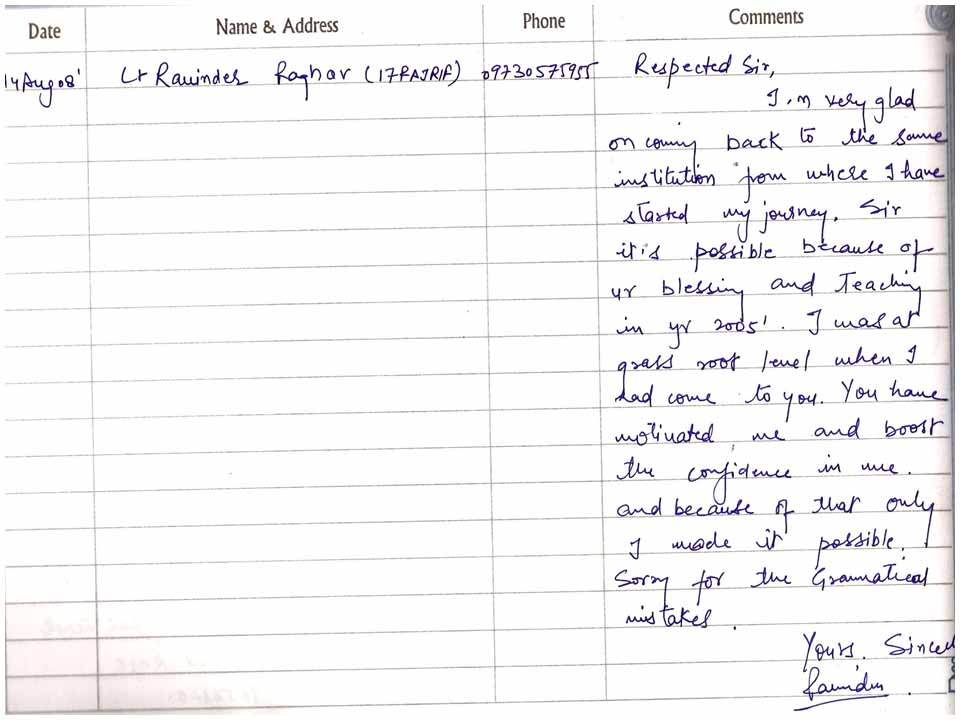 Date Name & Address Phone Comments
14 Aug 08' Lt Ravinder Raghav (17 RAJRIF) 09730575955 Respected Sir,
I'm very glad
on coming back to the same
institution from where I have
started my journey. Sir
it's possible because of
yr blessing and Teaching
in yr 2005'. I was at
grass root level when I
had come to you. You have
motivated me and boost
the confidence in me.
and because of that only
I made it possible.
Sorry for the Grammatical
mistakes.
Yours. Sincel
Ravinder.